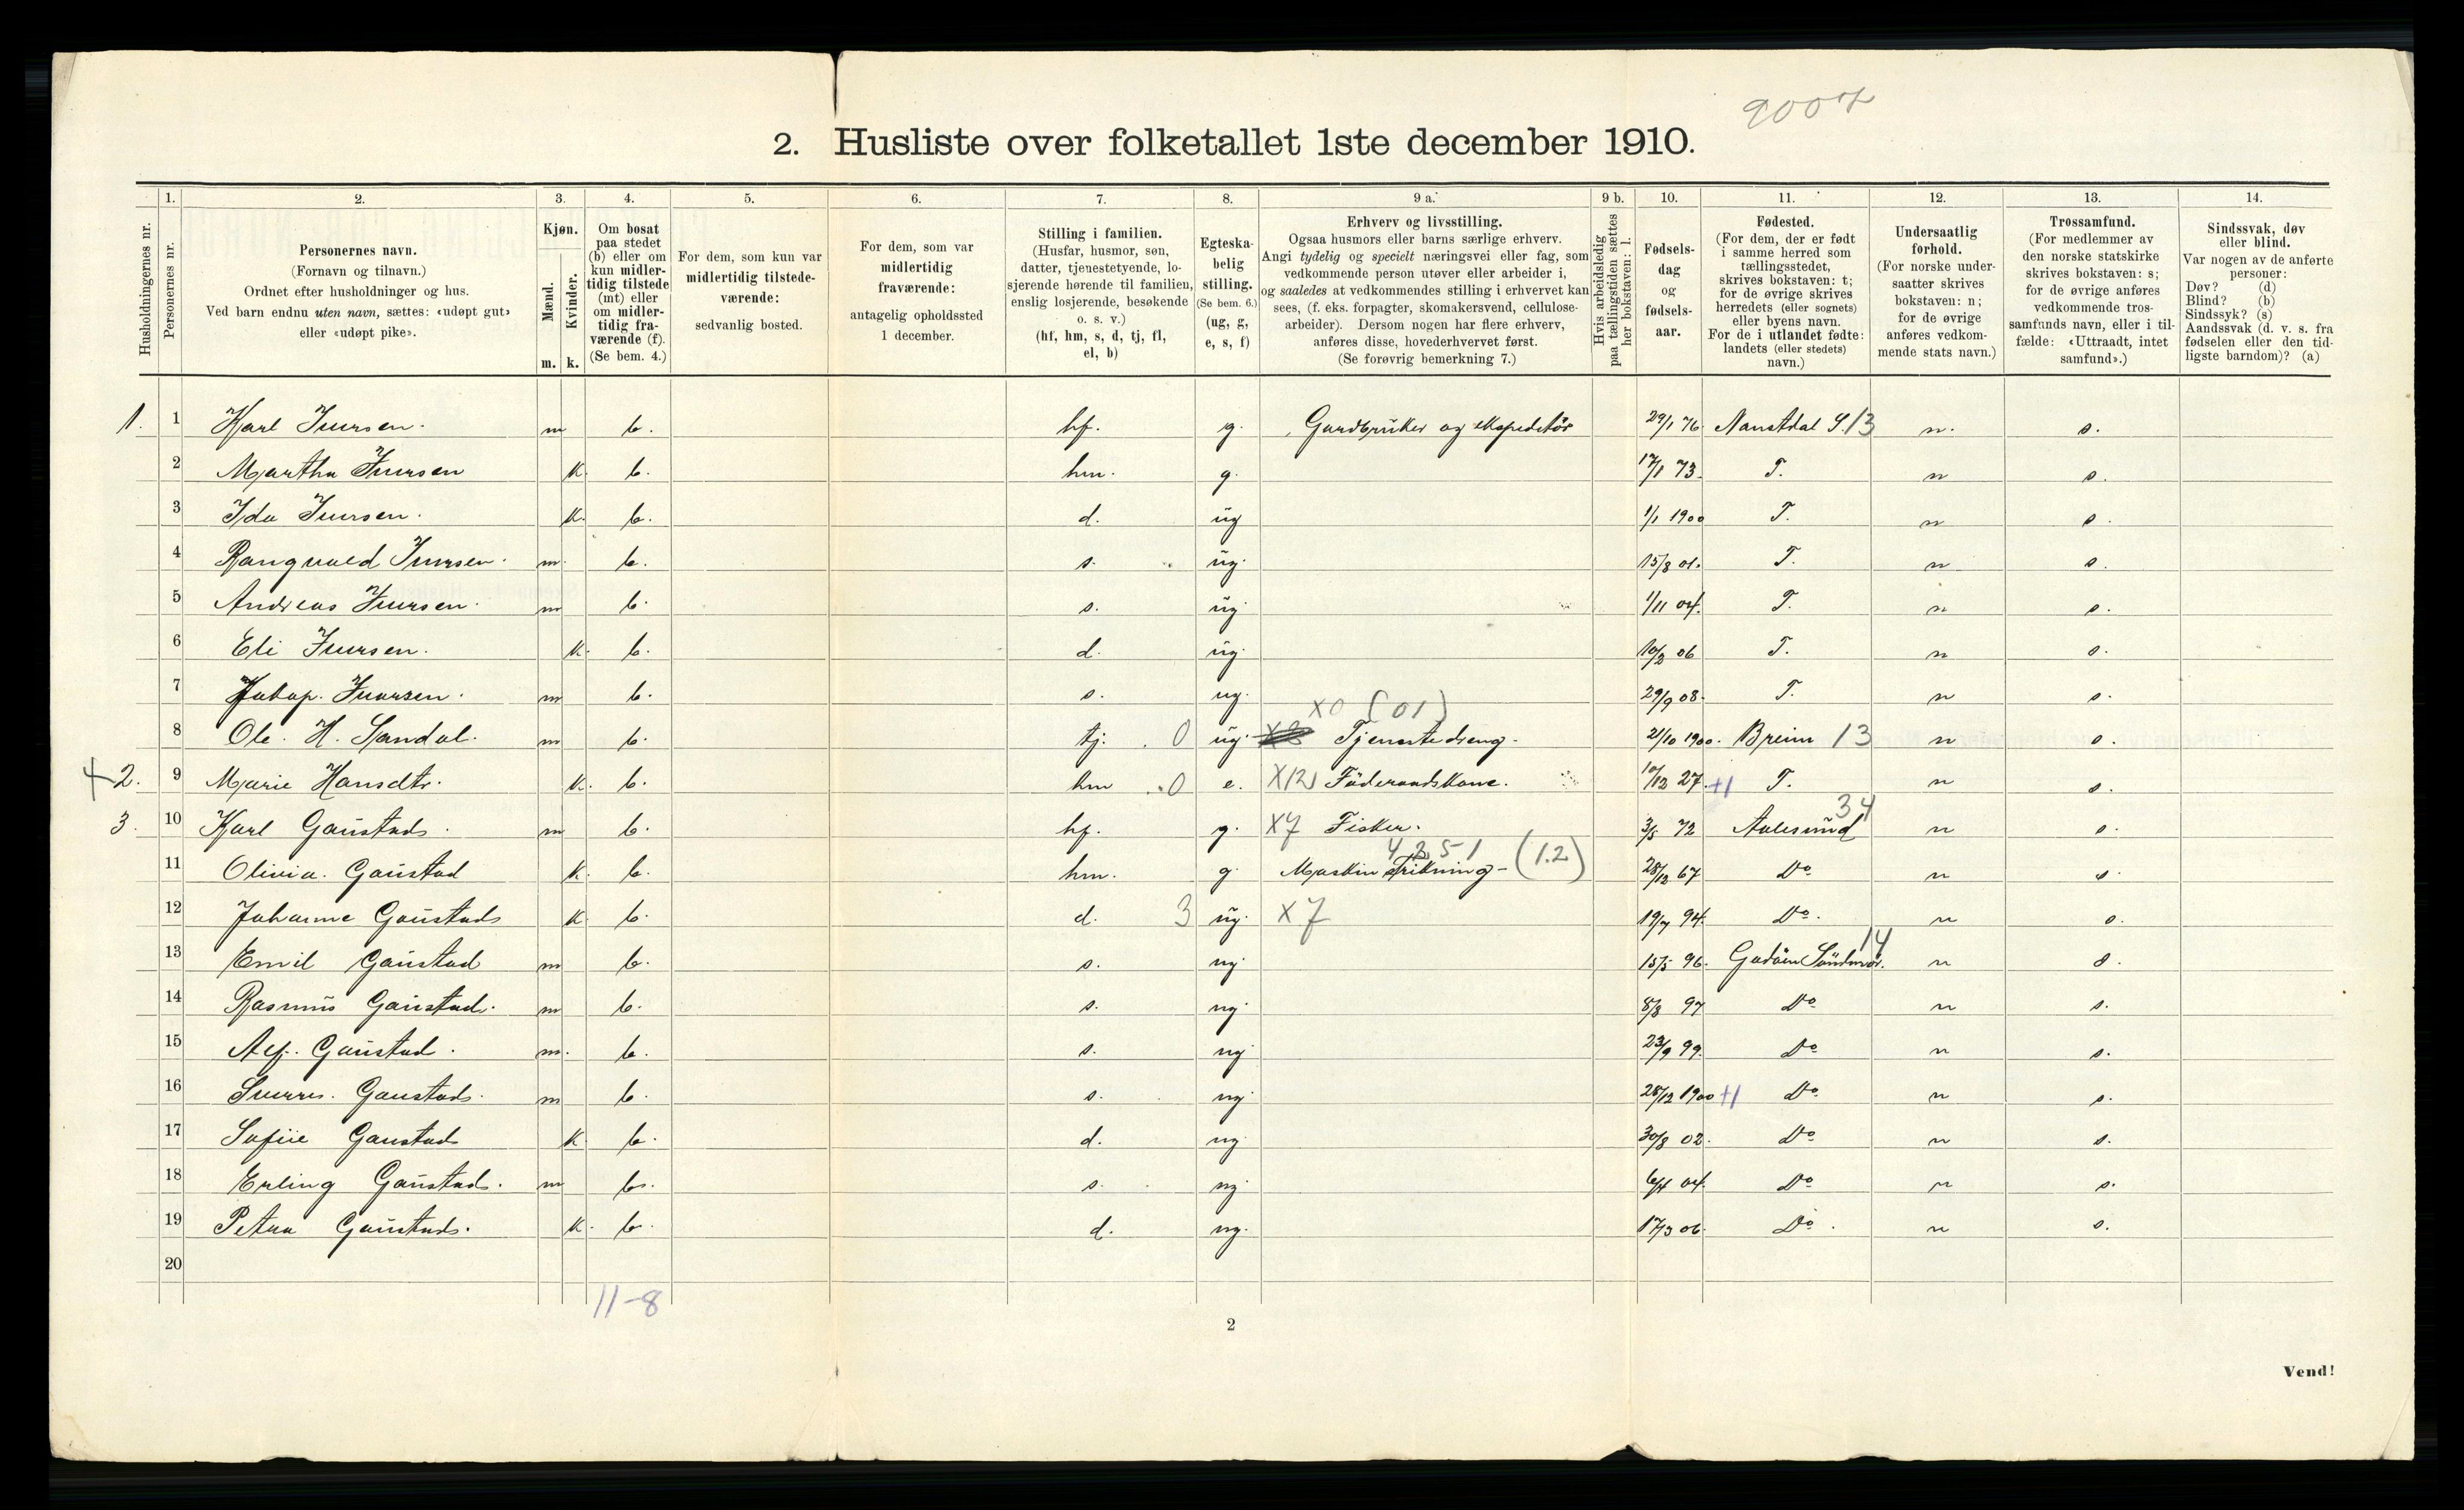 9007
2. Husliste over folketallet 1ste december 1910.
Husholdningernes nr.
1. Personernes nr.
2. Personernes navn. (Fornavn og tilnavn.) Ordnet efter husholdninger og hus. Ved barn endnu uten navn, sættes: «udøpt gut» eller «udøpt pike».
3. Kjøn. Mænd. m. Kvinder. k.
4. Om bosat paa stedet (b) eller om kun midlertidig tilstede (mt) eller om midlertidig fraværende (f). (Se bem. 4.)
5. For dem, som kun var midlertidig tilstedeværende: sedvanlig bosted.
6. For dem, som var midlertidig fraværende: antagelig opholdssted 1 december.
7. Stilling i familien. (Husfar, husmor, søn, datter, tjenestetyende, losjerende hørende til familien, enslig losjerende, besøkende o. s. v.) (hf, hm, s, d, tj, fl, el, b)
8. Egteskabelig stilling. (Se bem. 6.) (ug, g, e, s, f)
9 a. Erhverv og livsstilling. Ogsaa husmors eller barns særlige erhverv. Angi tydelig og specielt næringsvei eller fag, som vedkommende person utøver eller arbeider i, og saaledes at vedkommendes stilling i erhvervet kan sees, (f. eks. forpagter, skomakersvend, cellulosearbeider). Dersom nogen har flere erhverv, anføres disse, hovederhvervet først. (Se forøvrig bemerkning 7.)
9 b. Hvis arbeidsledig paa tællingstiden sættes her bokstaven: l.
10. Fødselsdag og fødselsaar.
11. Fødested. (For dem, der er født i samme herred som tællingsstedet, skrives bokstaven: t; for de øvrige skrives herredets (eller sognets) eller byens navn. For de i utlandet fødte: landets (eller stedets) navn.)
12. Undersaatlig forhold. (For norske undersaatter skrives bokstaven: n; for de øvrige anføres vedkommende stats navn.)
13. Trossamfund. (For medlemmer av den norske statskirke skrives bokstaven: s; for de øvrige anføres vedkommende trossamfunds navn, eller i tilfælde: «Uttraadt, intet samfund».)
14. Sindssvak, døv eller blind. Var nogen av de anførte personer: Døv? (d) Blind? (b) Sindssyk? (s) Aandssvak (d. v. s. fra fødselen eller den tidligste barndom)? (a)
1. 1 Karl Iversen. m b. hf. g. Gardbruker og ekspeditør 29/1 76 Naustdal S. 13 n. s.
2 Martha Iversen k. b. hm. g. 17/1 73. T. n s.
3 Ida Iversen. k. b. d. ug 1/1 1900 T. n s.
4 Rangvald Iversen. m. b. s. ug. 15/8 01. T. n s.
5 Andreas Iversen. m b. s. ug. 1/11 04. T. n s.
6 Eli Iversen. k. b. d. ug. 10/2 06 T. n s.
7 Jakop. Iversen. m b. s. ug. 29/9 08. T. n s.
8 Ole. H. Sandal. m b. tj. 0 ug. X0 (01) Tjenestedreng. 21/10 1900. Breim 13 n s.
2. 9 Marie Hansdtr. k. b. hm 0 e. X12) Föderaadskone. 10/12 27. +1 T. n s.
3. 10 Karl Gaustad. m b. hf. g. X7 Fisker. 3/5 72 Aalesund 34 n s.
11 Olivia. Gaustad k. b. hm. g. Maskin Strikning - (1.2) 28/12 67 Do n s.
12 Johanne Gaustad k. b. d. 3 ug. X7 19/7 94. Do. n s.
13 Emil Gaustad m b. s. ug. 15/5 96. Godöen Söndmör. 14 n s.
14 Rasmus Gaustad. m b. s. ug. 8/8 97 Do n s.
15 Alf. Gaustad. m. b. s. ug 23/9 99. Do n s.
16 Sverre. Gaustad. m b. s. ug 28/12 1900 +1 Do n s.
17 Sofie Gaustad k. b. d. ug 30/8 02. Do n s.
18 Erling Gaustad. m b. s. ug. 6/4 04. Do n s.
19 Petra Gaustad. k. b. d. ug. 17/3 06. Do. n s.
20
11-8
2
Vend!